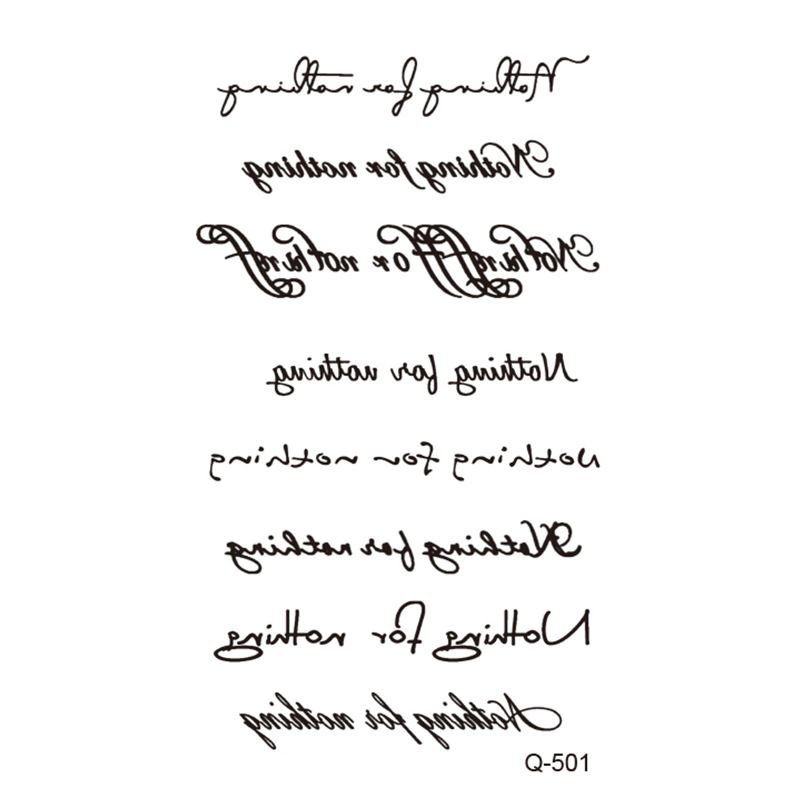 Nothing for nothing
Nothing for nothing
Nothing for nothing
Nothing for nothing
nothing for nothing
Nothing for nothing
Nothing for nothing
Nothing for nothing
Q-501